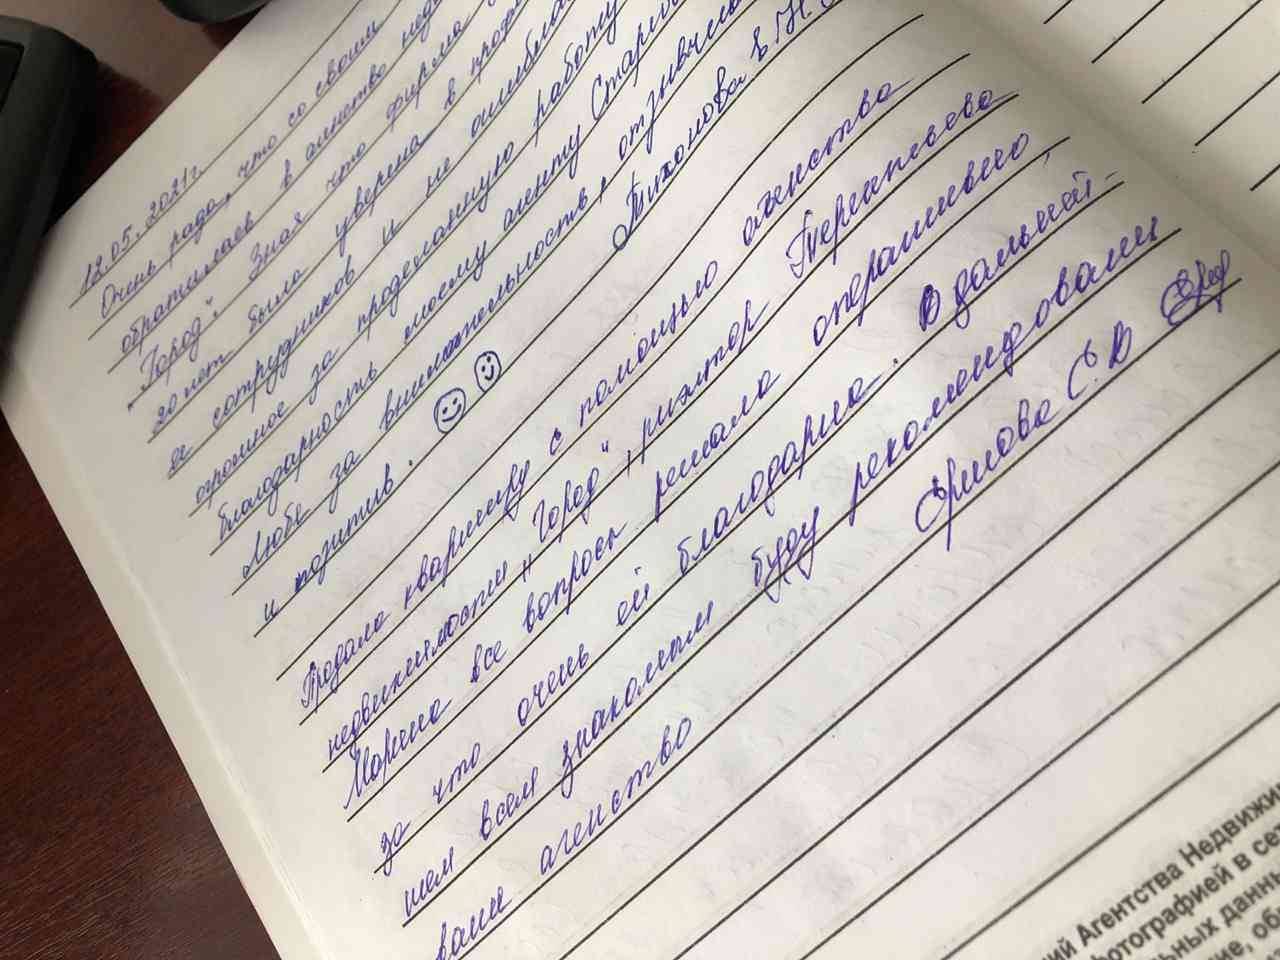 12.05.2021г.
Очень рада, что со своим
обратилась в агенство нед
"Город". Зная что фирма
20 лет была уверена в проф
ее сотрудников и не ошиблась
огромное за проделанную работу
благодарность моему агенту Стари
Любе за внимательность, отзывчив
и позитив.
Тихонова Е.Н.
Продала квартиру с помощью агенства
недвижимости „Город", риэлтор Терентьева
Марина все вопросы решала оперативно,
за что очень ей благодарна. В дальней-
шем всем знакомым буду рекомендовать
ваше агенство
С.В
ий Агентства Недвижи
фотографией в се
льных данны
ие, об